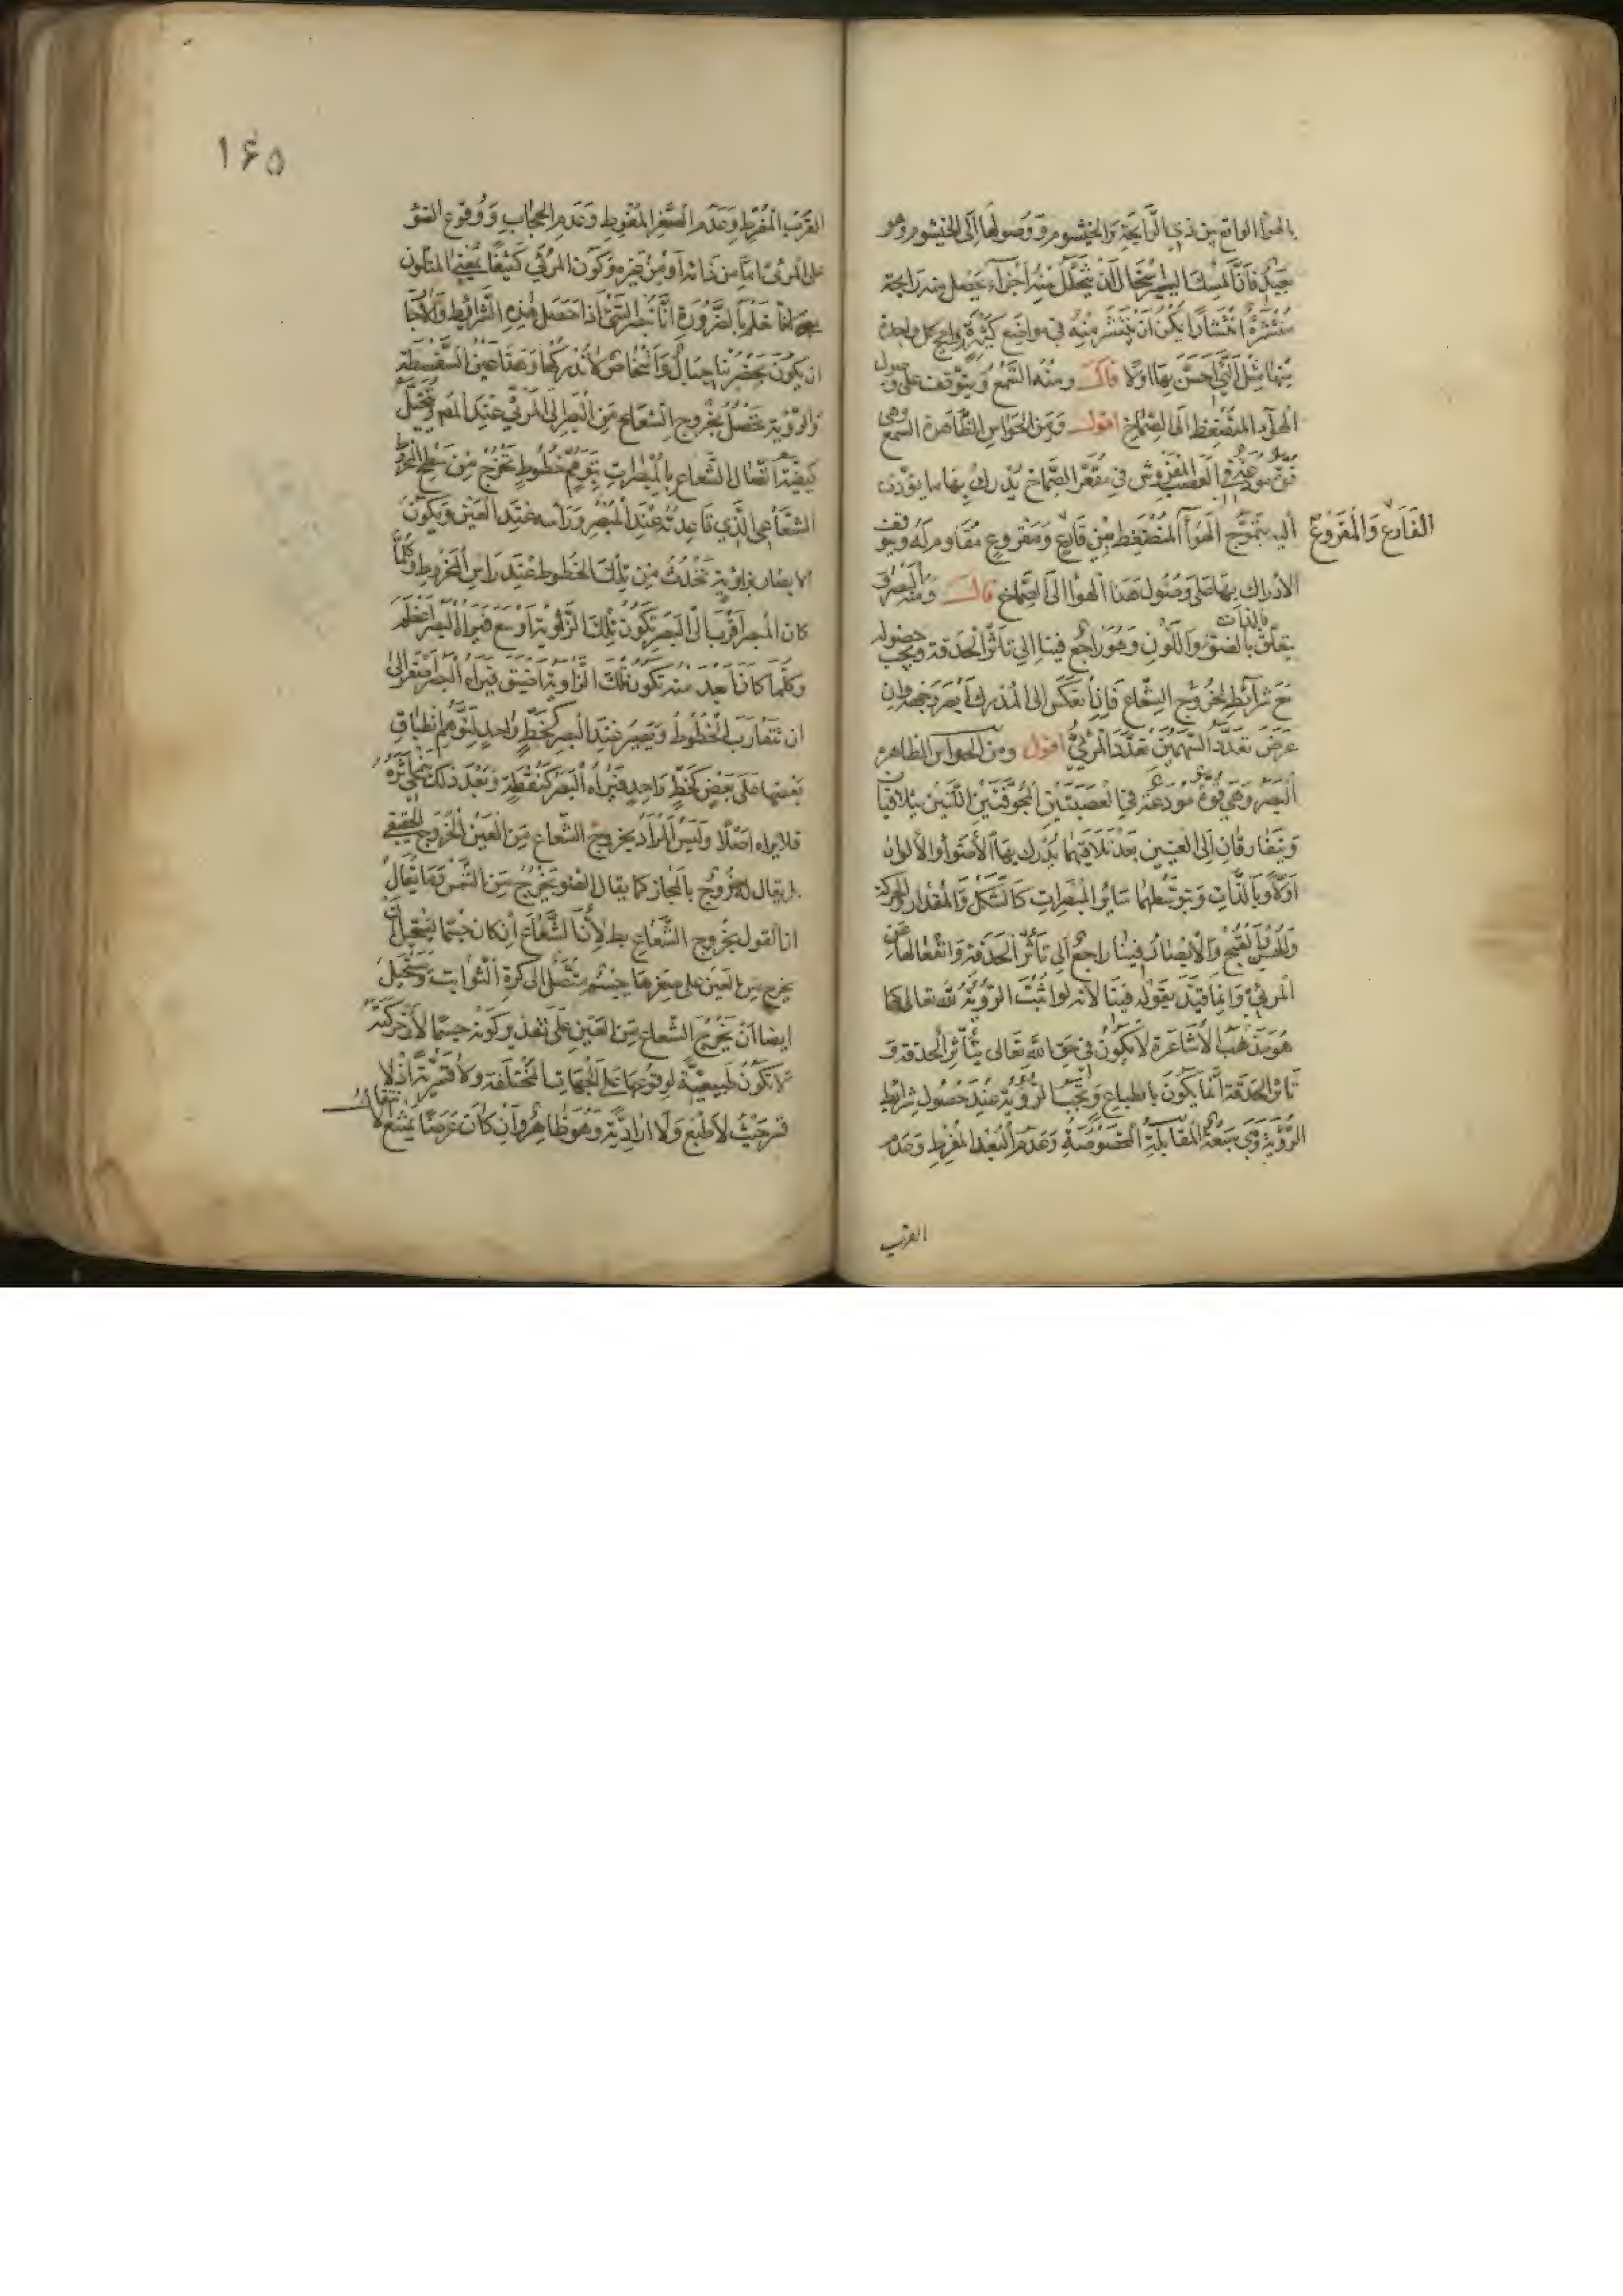 بالهواء الواقع بين ذي الرايحة والخيشوم ووصولها الى الخيشوم وهو
فان المسك اليسير استحال ان يتحلل منه اجزاء يحصل منه رايحة
منتشرة انتشارا يمكن ان ينتشر منه في مواضع كثيرة كل واحدة
منها مثل التي احس بها اولا قال ومنه السمع ويتوقف على وصول
الهواء المنضغط الى الصماخ اقول ومن الحواس الظاهرة السمع وهي
قوة مودعة في العصب المفروش في مقعر الصماخ يدرك بها ما يؤدى
اليه بتموج الهواء المنضغط بين قارع ومقروع مقاوم له ويتوقف
القارع والمقروع
الادراك بها على وصول هذا الهواء الى الصماخ قال ومنه البصر و
يتعلق بالذات بالضوء واللون وهو راجع فينا الى تاثر الحدقة ويجب حصوله
مع شرايطه بخروج الشعاع فان انعكس الى المدرك ابصر وجهه وان
عرض تعدد السهمين تعدد المرئي اقول ومن الحواس الظاهره
البصر وهي قوة مودعة في العصبتين المجوفتين اللتين يتلاقيان
ويتفارقان الى العينين بعد تلاقيهما يدرك بها الاضواء والالوان
اولا وبالذات وبتوسطهما سائر المبصرات كالشكل والمقدار والحركة
والحسن والقبح والابصار فينا راجع الى تاثر الحدقة وانفعالها عن
المرئي وانما قيد بقوله فينا لانه لو اثبت الرؤية لله تعالى كما
هو مذهب الاشاعرة لا يكون في حق الله تعالى بتاثر الحدقة و
تاثر الحدقة انما يكون بانطباع ويجب الرؤية عند حصول شرائط
الرؤية وهي سبعة المقابلة المخصوصة وعدم البعد المفرط وعدم
القرب
١۶۵
القرب المفرط وعدم الصغر المفرط وعدم الحجاب ووقوع الضوء
على المرئي اما من ذاته او من غيره وكون المرئي كثيفا بمعنى المتلون
لانا نعلم بالضرورة انا نبصر الشيء اذا حصل هذه الشرائط والا جاز
ان يكون بحضرتنا جبال واشخاص لا ندركها وهذا عين السفسطة
والرؤية تحصل بخروج الشعاع من البصر الى المرئي عند المص وتخيل
كيفية اتصال الشعاع بالمبصرات بتوهم خطوط تخرج من سطح المخروط
الشعاعي الذي قاعدته عند المبصر وراسه عند العين ويكون
الابصار بزاوية تحدث من تلك الخطوط عند راس المخروط وكلما
كان المبصر اقرب الى البصر تكون تلك الزاوية اوسع فيراه البصر اعظم
وكلما كان ابعد منه تكون تلك الزاوية اضيق فيراه البصر اصغر الى
ان تتقارب الخطوط ويصير عند البصر كخط واحد لتوهم انطباق
بعضها على بعض كخط واحد فيراه البصر كنقطة وبعد ذلك ينمحي اثره
فلا يراه اصلا وليس المراد بخروج الشعاع من العين الخروج الحقيقي
بل يقال الخروج بالمجاز كما يقال الضوء يخرج من الشمس وما يقال
ان القول بخروج الشعاع بط لان الشعاع ان كان جسما يستحيل ان
يخرج من العين على صغرها جسم متصل الى كرة الثوابت ويستحيل
ايضا ان يخرج الشعاع من العين على تقدير كونه جسما لان حركته
لا تكون طبيعية لوقوعها على الجهات المختلفة ولا قسرية اذ لا
قسر حيث لا طبع ولا ارادية وهو ظاهر وان كان عرضا يمتنع الانتقال